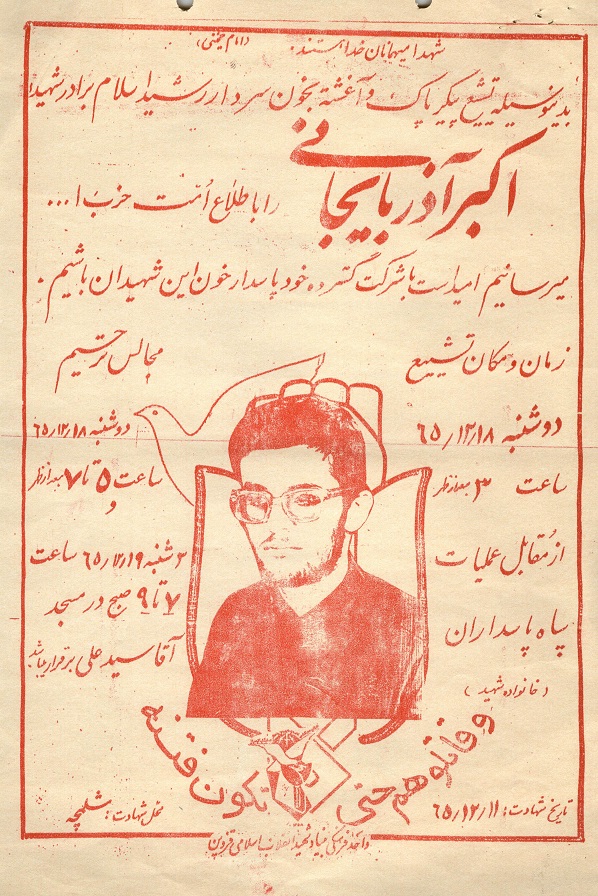 شهدا میهمانان خدا هستند. (امام خمینی)
بدینوسیله تشیع پیکر پاک و آغشته بخون سردار رشید اسلام برادر شهید
اکبر آذربایجانی
را باطلاع اُمت حزب ا...
میرسانیم امید است با شرکت گسترده خود پاسدار خون این شهیدان باشیم.
زمان و مکان تشییع
دوشنبه ۶۵/۱۲/۱۸
ساعت ۳ بعدازظهر
از مُقابل عملیات
سپاه پاسداران
(خانواده شهید)
مجالس ترحیم
دوشنبه ۶۵/۱۲/۱۸
ساعت ۵ تا ۷ بعدازظهر
و
۳ شنبه ۶۵/۱۲/۱۹ ساعت
۷ تا ۹ صبح در مسجد
آقا سید علی برقرار میباشد
و قاتلوهم حتی لا تکون فتنه
تاریخ شهادت: ۶۵/۱۲/۱۱
محل شهادت: شلمچه
واحد فرهنگی بنیاد شهید انقلاب اسلامی قزوین